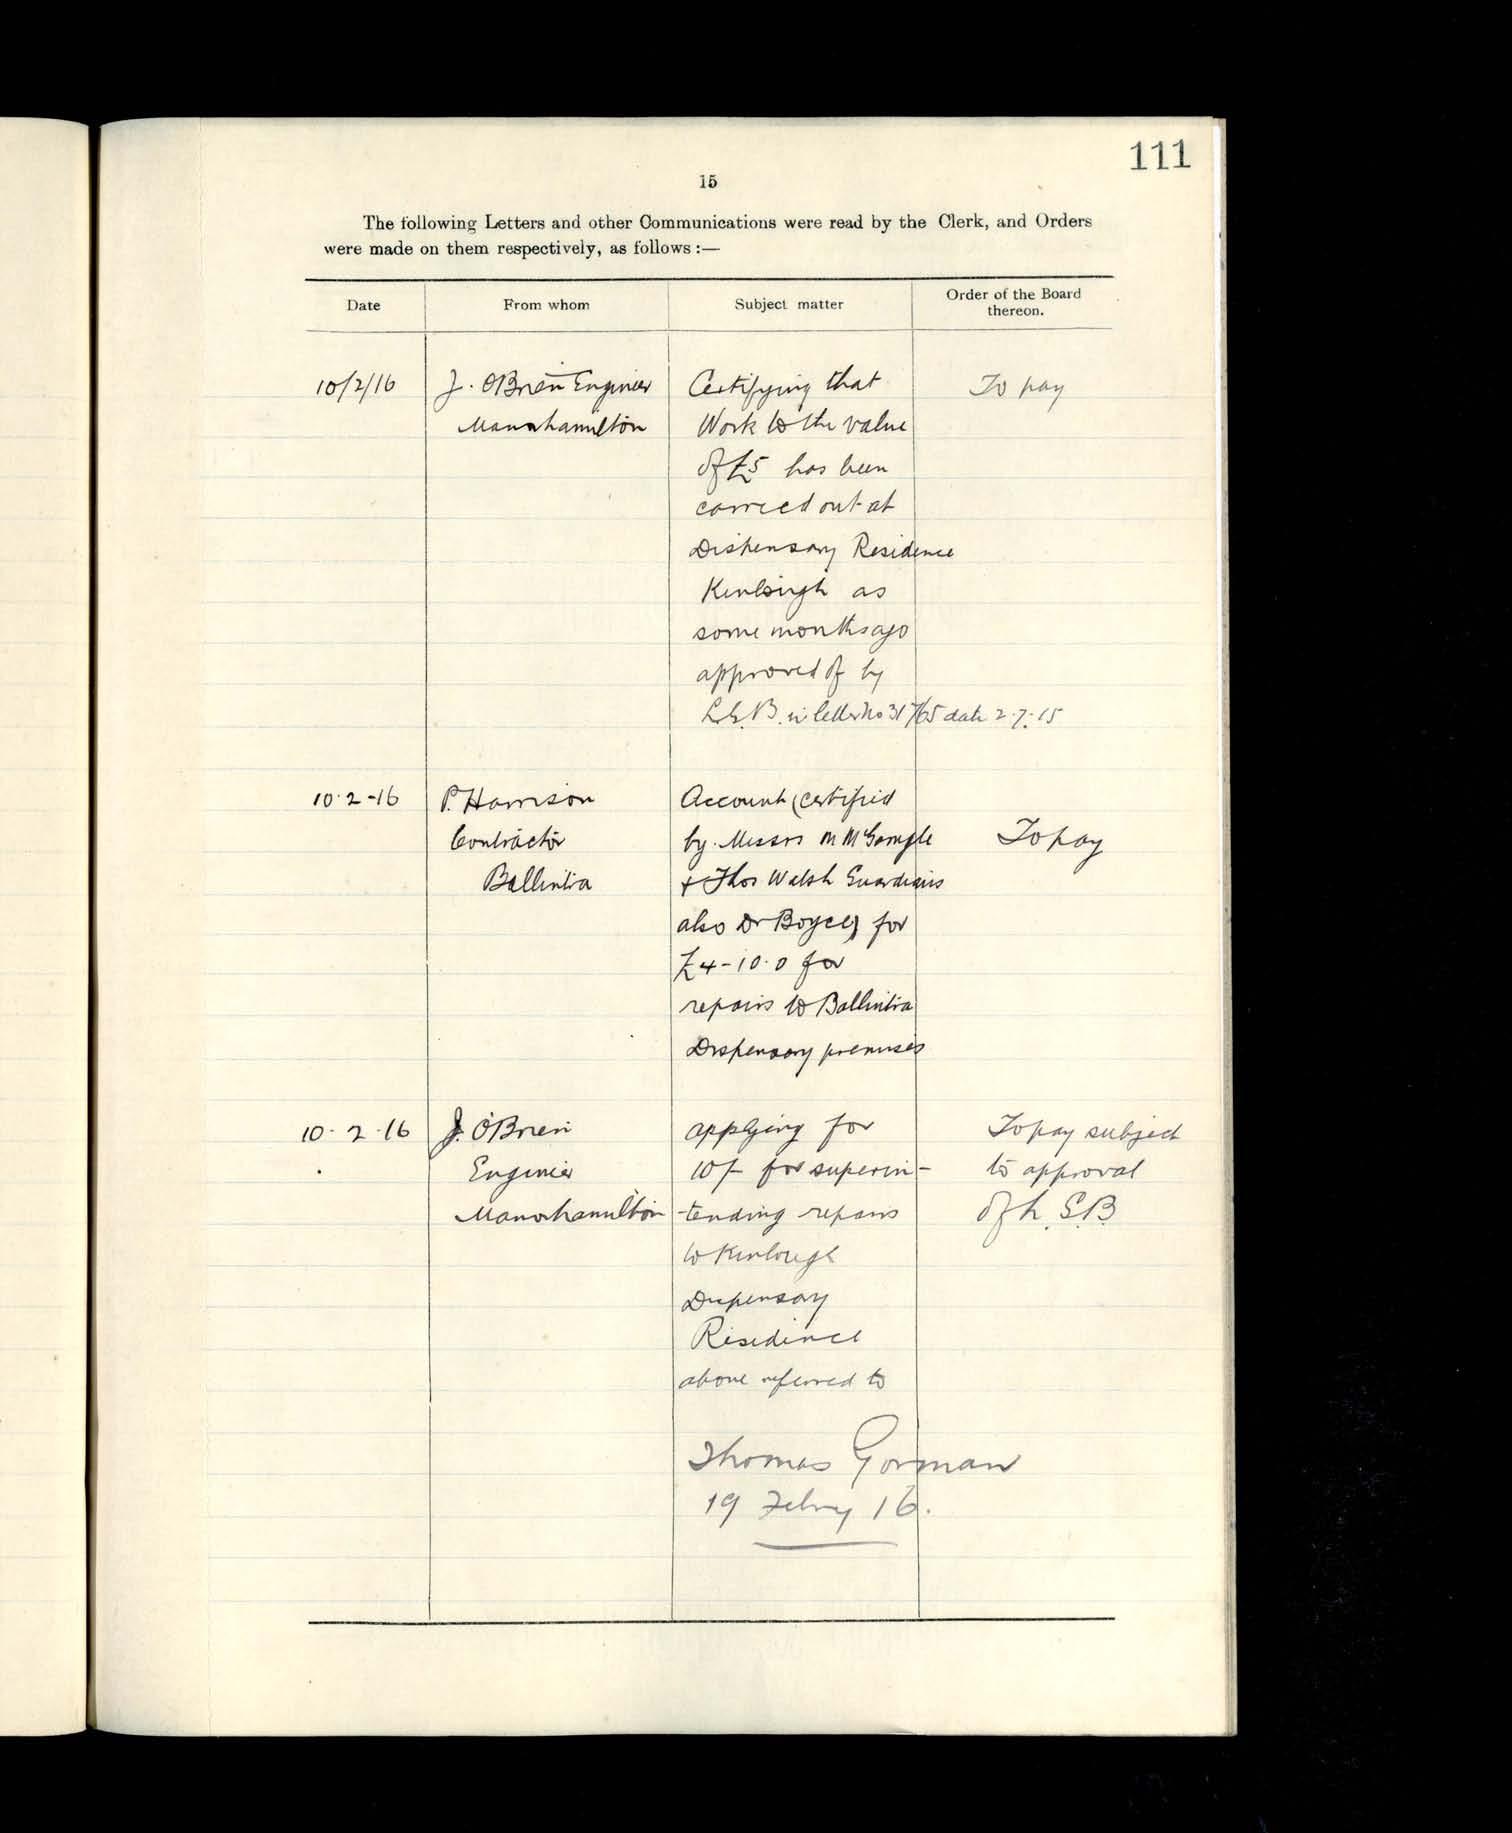 111
15
The following Letters and other Communications were read by the Clerk, and Orders
were made on them respectively, as follows :—
Date
From whom
Subject matter
Order of the Board
thereon.
10/2/16
J. O'Brien Engineer
Manorhamilton
Certifying that
Work to the value
of £5 has been
carried out at
Dispensary Residence
Kinlough as
some months ago
approved of by
L.G.B. in letter No 31765 date 2.7.15
To pay
10.2-16
P. Harrison
Contractor
Ballintra
Account (certified
by Messrs M McGonigle
& Thos Walsh Guardians
also Dr Boyce) for
£4-10.0 for
repairs to Ballintra
Dispensary premises
To pay
10.2.16
J. O'Brien
Engineer
Manorhamilton
applying for
10/- for superin-
tending repairs
to Kinlough
Dispensary
Residence
above referred to
To pay subject
to approval
of L.G.B
Thomas Gorman
19 Febry 16.